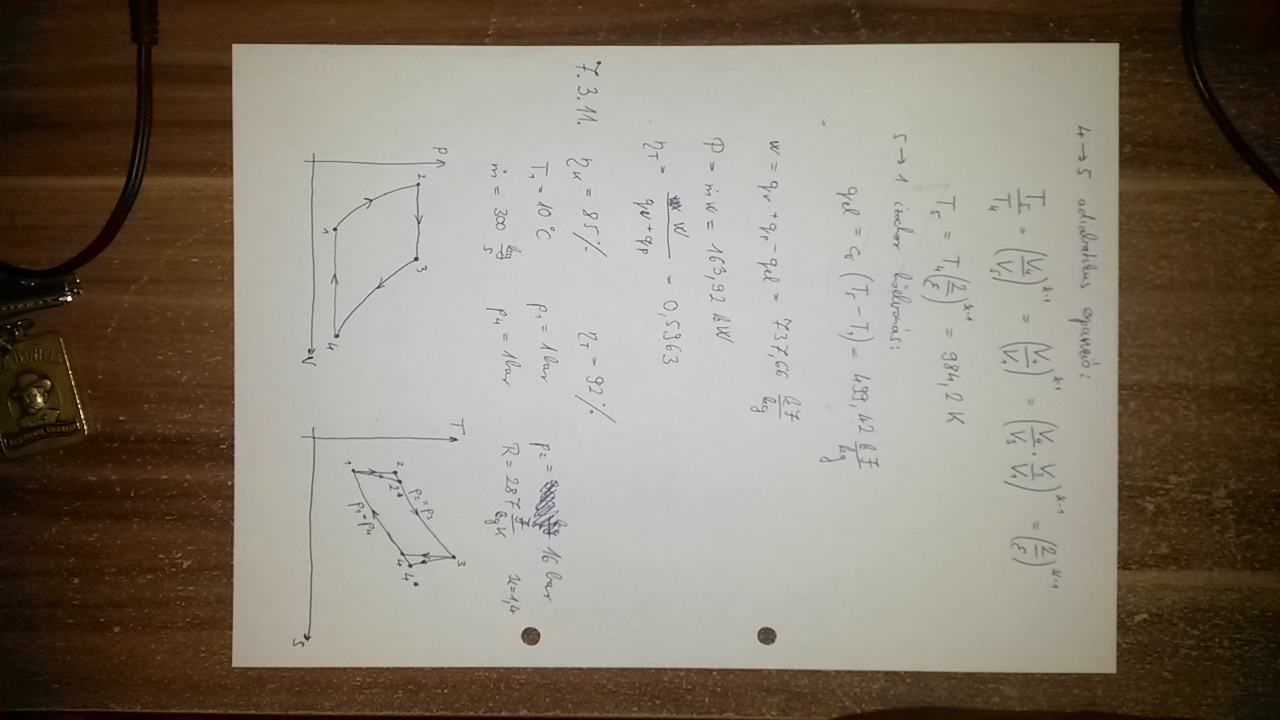 4 → 5 adiabatikus expanzió:
T₅/T₄ = (V₄/V₅)^(κ-1) = (V₄/V₁)^(κ-1) = (V₄/V₃ · V₃/V₁)^(κ-1) = (ρ/ε)^(κ-1)
T₅ = T₄(ρ/ε)^(κ-1) = 984,2 K
5 → 1 izochor hőelvonás:
q_el = c_v (T₅ - T₁) = 499,42 kJ/kg
w = q_v + q_p - q_el = 737,66 kJ/kg
P = ṁ w = 163,92 kW
η_T = w / (q_v + q_p) = 0,5963
7.3.11. η_K = 85% η_T = 92%
T₁ = 10°C p₁ = 1 bar p₂ = 16 bar
ṁ = 300 kg/s p₄ = 1 bar R = 287 J/kgK κ=1,4
P
2
3
1
4
V
T
2
2*
p₂=p₃
3
1
p₁=p₄
4
4*
S